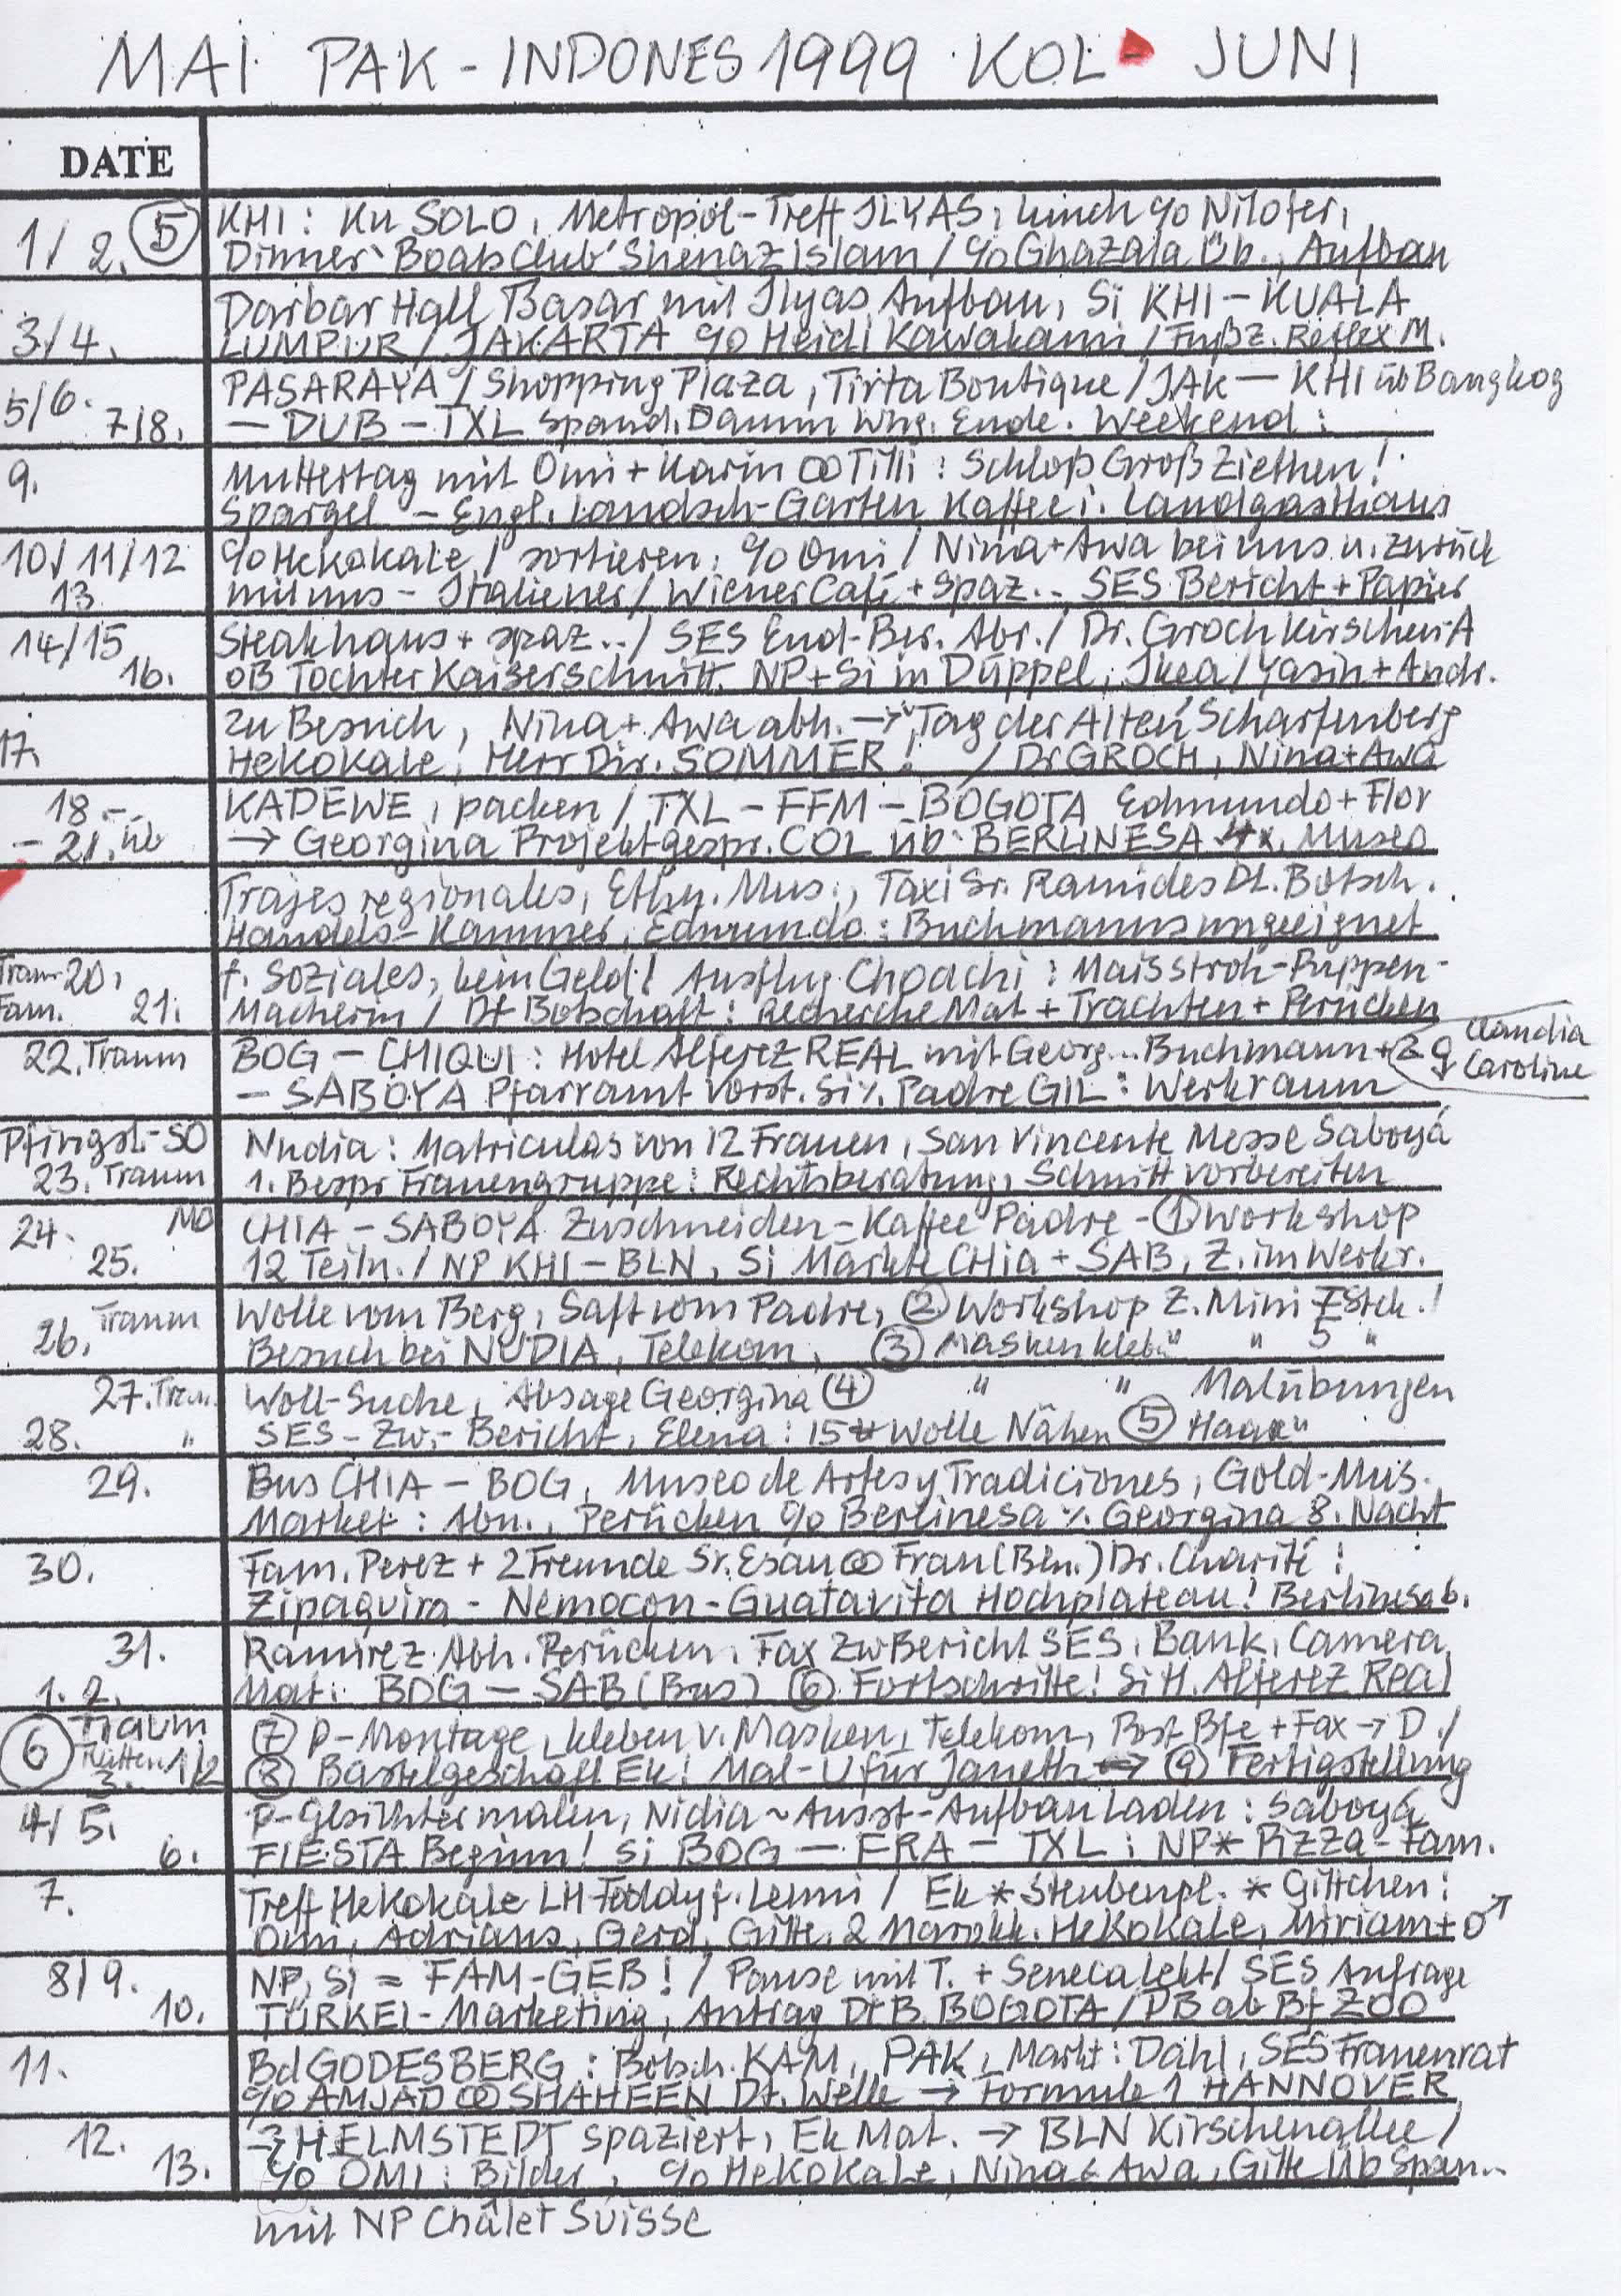 MAI PAK - INDONES 1999 KOL - JUNI
DATE
1/ 2. ⑤ KHI: Ku SOLO, Metropol-Treff ILYAS, Lunch c/o Nilofer,
Dinner 'Boats Club' Shenaz Islam / c/o Ghazala Üb., Aufbau
3/4. Darbar Hall Basar mit Ilyas Aufbau, Si KHI - KUALA
LUMPUR / JAKARTA c/o Heidi Kawakami / Fußz. Reflex M.
5/6. PASARAYA / Shopping Plaza, Tirta Boutique / JAK - KHI üb Bangkog
7/8. - DUB - TXL Spand. Damm Whg. Ende. Weekend:
9. Muttertag mit Omi + Karin ∞ Tilli: Schloß Groß Ziethen!
Spargel - Engl. Landsch-Garten Kaffee i. Landgasthaus
10/11/12 c/o Hekokale / sortieren, c/o Omi / Nina + Awa bei uns u. zurück
13. mit uns - Italiener / Wiener Café + Spaz.. SES Bericht + Papier
14/15 Steakhaus + spaz.. / SES End-Ber. Abr. / Dr. Groch Kirschen-A
16. oB Tochter Kaiserschnitt. NP + Si in Düppel, Ikea / Yasin + Andr.
17. zu Besuch, Nina + Awa abh. → "Tag der Alten" Scharfenberg
Hekokale, Herr Dir. SOMMER! / Dr GROCH, Nina + Awa
18.- KADEWE, packen / TXL - FFM - BOGOTA Edmundo + Flor
- 21. üb → Georgina Projektgespr. COL üb. BERLINESA 4x. Museo
Trajes regionales, Ethn. Mus., Taxi Sr. Ramides Dt. Botsch.
Handels-Kammer, Edmundo: Buchmanns ungeeignet
Traum 20. f. Soziales, kein Geld! Ausflug Choachi: Maisstroh-Puppen-
Fam. 21. Macherin / Dt Botschaft: Recherche Mat + Trachten + Perücken
22. Traum BOG - CHIQUI: Hotel Alferez REAL mit Georg... Buchmann + 2 ♀ Claudia Caroline
- SABOYA Pfarramt Vorst. Si ./. Padre GIL: Werkraum
Pfingst.-SO Nudia: Matriculas von 12 Frauen, San Vincente Messe Saboyá
23. Traum 1. Bespr Frauengruppe: Rechtsberatung, Schnitt vorbereiten
24. MO CHIA - SABOYA Zuschneiden - Kaffee Padre - ① Workshop
25. 12 Teiln. / NP KHI - BLN, Si Märkte CHia + SAB, Z. im Werkr.
Traum Wolle vom Berg, Saft vom Padre, ② Workshop Z. Mini 7 Stck.!
26. Besuch bei NUDIA, Telekom, ③ Masken kleb. " " 5 "
27. Traum Woll-Suche, Absage Georgina ④ " " Malübungen
28. " SES-Zw.-Bericht, Elena: 15 Wolle Nähen ⑤ Haare"
29. Bus CHIA - BOG, Museo de Artes y Tradiciones, Gold-Mus.
Market: Abn., Perücken c/o Berlinesa ./. Georgina 8. Nacht
30. Fam. Perez + 2 Freunde Sr. Esau ∞ Frau (Bln.) Dr. Charité:
Zipaquira - Nemocon - Guatavita Hochplateau! Berlinesa b.
31. Ramirez Abh. Perücken, Fax Zw Bericht SES, Bank, Camera,
1. 2. Mat. BOG - SAB (Bus) ⑥ Fortschritte! Si H. Alferez Real
⑥ Traum ⑦ P-Montage, kleben v. Masken, Telekom, Post Bfe + Fax → D./
3. 1/2 ⑧ Bastelgeschäft Ek! Mal-U für Janeth ↔ ⑨ Fertigstellung
4/5. P-Gesichter malen, Nidia ~ Ausst-Aufbau Laden: Saboyá
6. FIESTA Beginn! Si BOG - FRA - TXL: NP* Pizza-Fam.
7. Treff Hekokale LH f. Lenni / Ek * Steubenpl. * Gittchen:
Omi, Adrians, Gerd, Gitte, 2 Marokk. Hekokale, Miriam + ♂
8/9. NP, Si = FAM-GEB! / Pause mit T. + Seneca Lekt / SES Anfrage
10. TÜRKEI-Marketing, Antrag Dt B. BOGOTA / DB ab Bf ZOO
11. Bd GODESBERG: Botsch. KAM, PAK, Markt: Dahl, SES Frauenrat
c/o AMJAD ∞ SHAHEEN Dt. Welle → Formule 1 HANNOVER
12. HELMSTEDT spaziert, Ek Mat. → BLN Kirschenallee /
13. c/o OMI: Bilder, c/o Hekokale, Nina + Awa, Gitte Üb Span..
mit NP Châlet Suisse